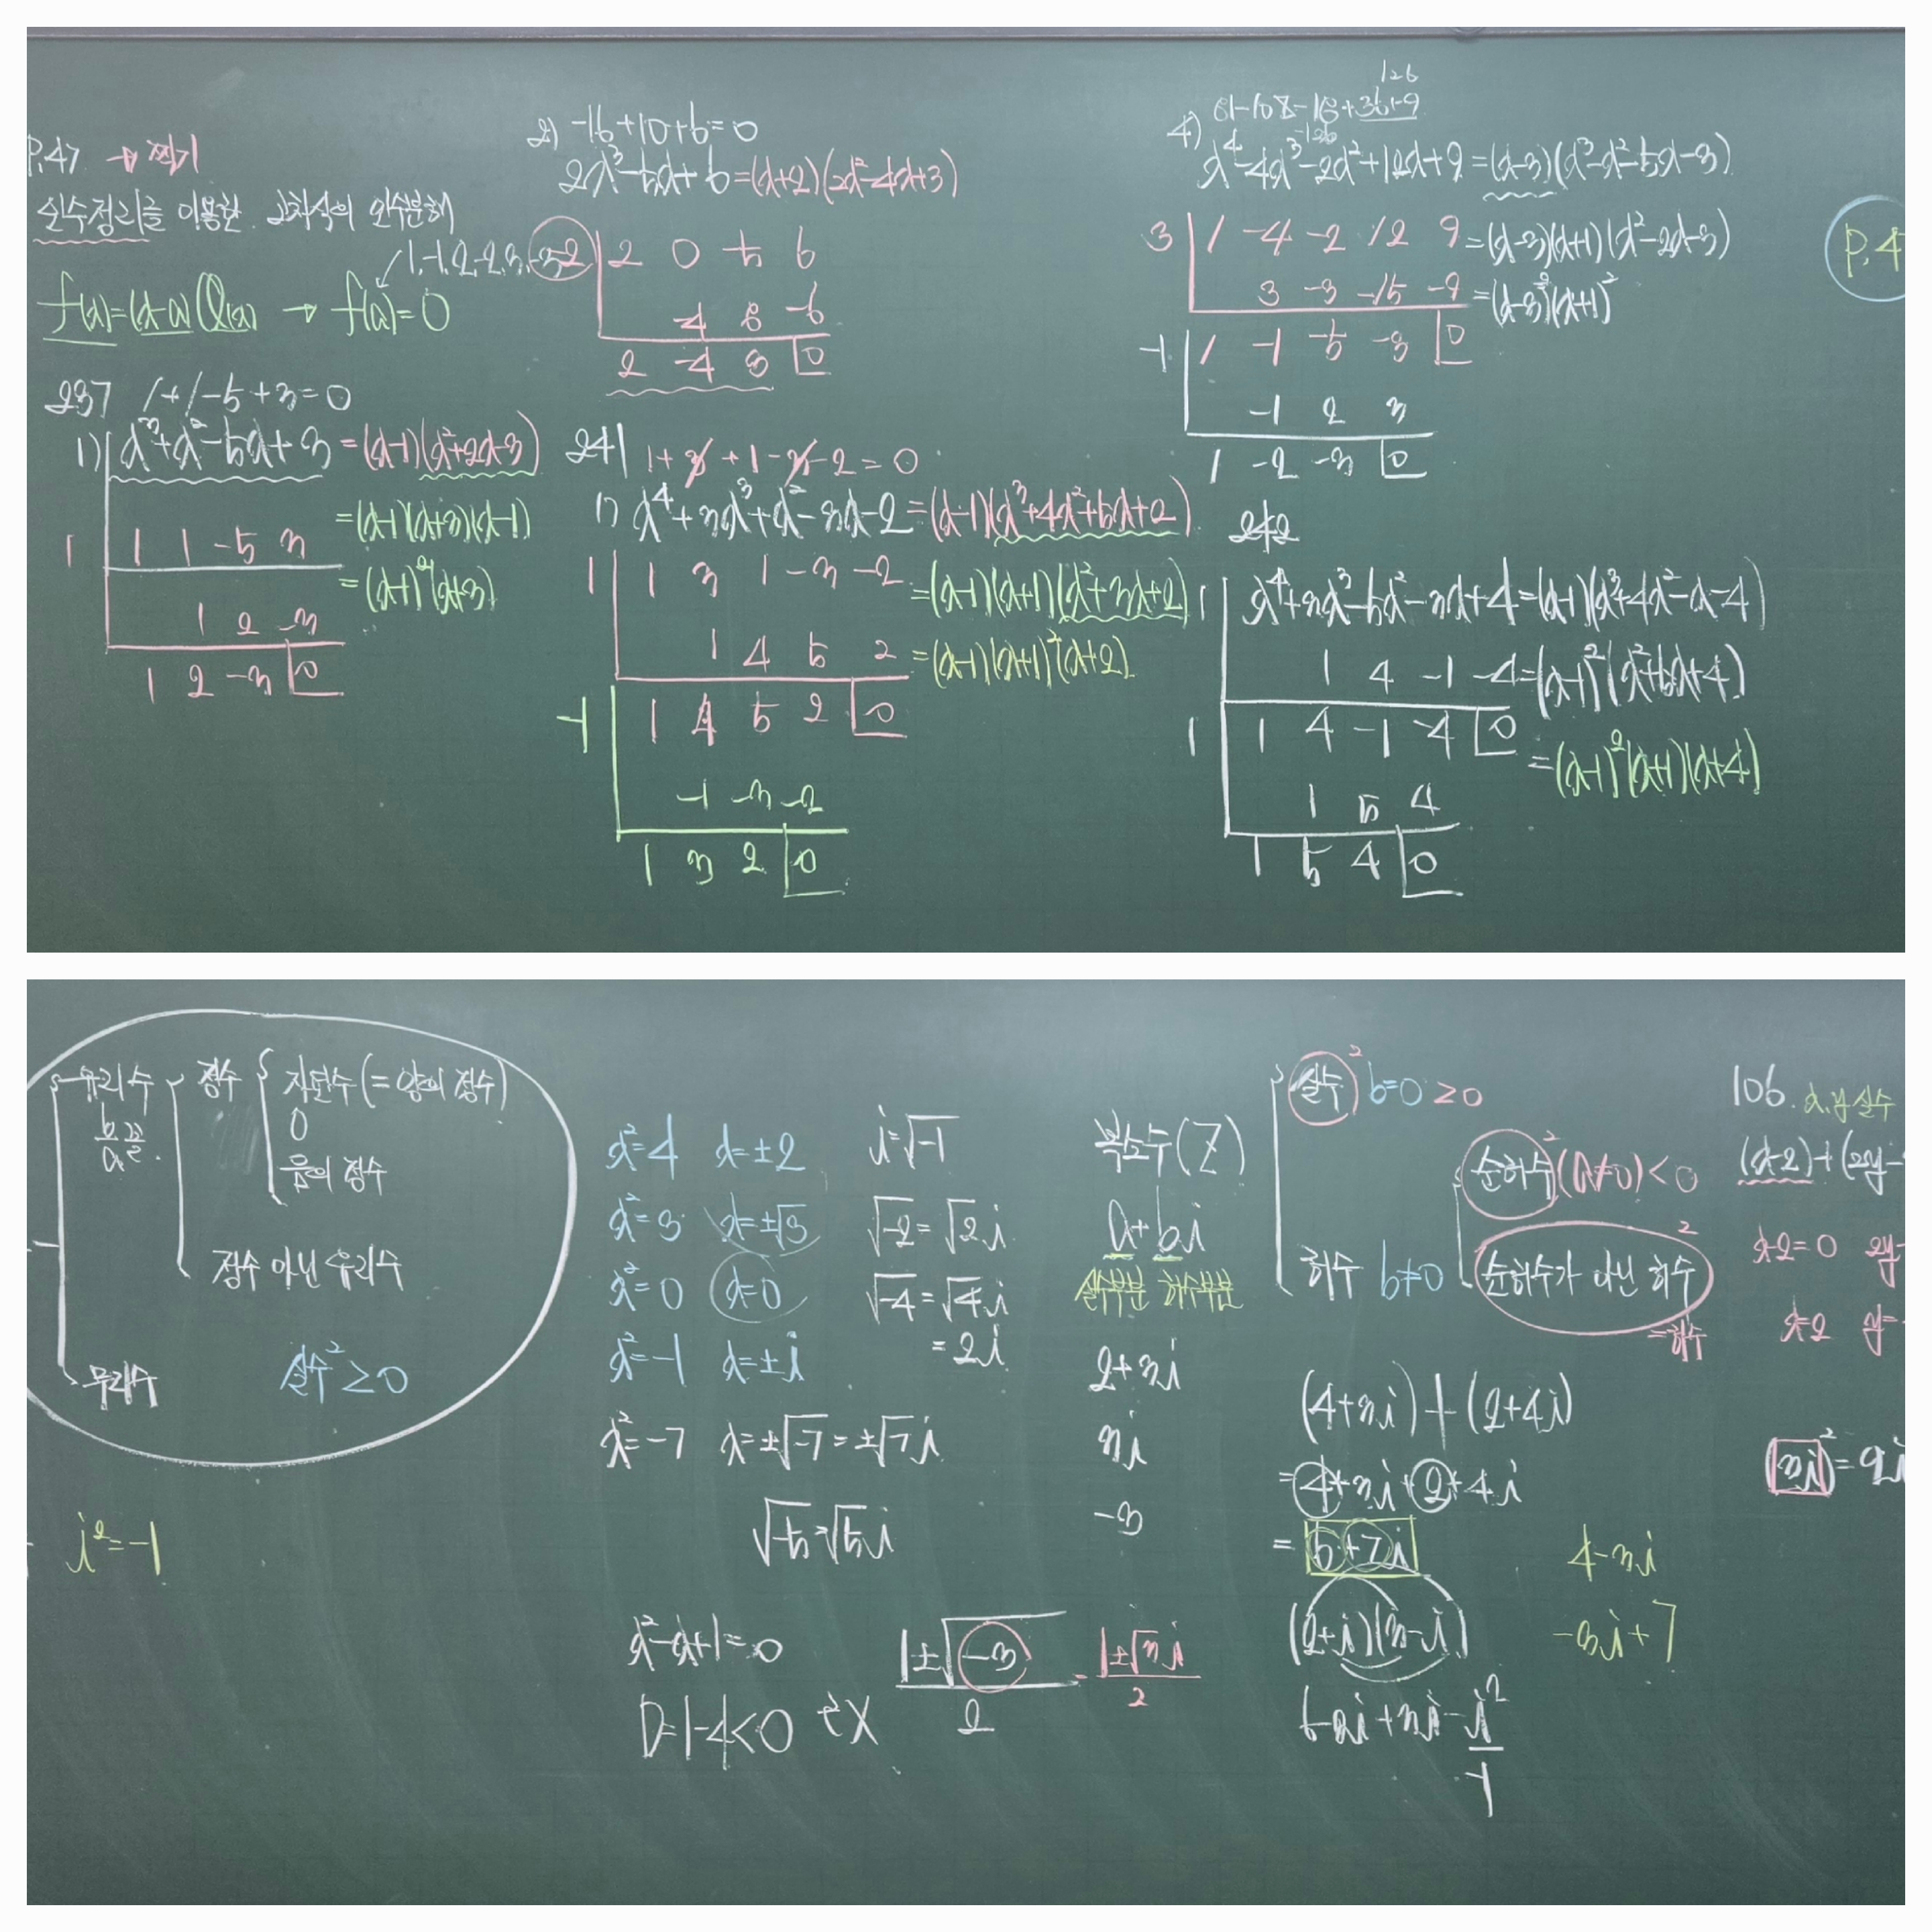 P.47 → 찍기
인수정리를 이용한 고차식의 인수분해
1,-1,2,-2,3,-3
f(x)=(x-a)Q(x) → f(a)=0
237 1+1-5+3=0
1) x³+x²-5x+3=(x-1)(x²+2x-3)
=(x-1)(x+3)(x-1)
1 1 1 -5 3
=(x-1)²(x+3)
1 2 -3
1 2 -3 0
2) -16+10+6=0
2x³-5x+6=(x+2)(2x²-4x+3)
-2 2 0 -5 6
-4 8 -6
2 -4 3 0
241 1+3+1-3-2=0
1) x⁴+3x³+x²-3x-2=(x-1)(x³+4x²+5x+2)
1 1 3 1 -3 -2 =(x-1)(x+1)(x²+3x+2)
1 4 5 2 =(x-1)(x+1)²(x+2)
-1 1 4 5 2 0
-1 -3 -2
1 3 2 0
126
81-108-18+36+9
-126
4) x⁴-4x³-2x²+12x+9=(x-3)(x³-x²-5x-3)
3 1 -4 -2 12 9 =(x-3)(x+1)(x²-2x-3)
3 -3 -15 -9 =(x-3)²(x+1)²
-1 1 -1 -5 -3 0
-1 2 3
1 -2 -3 0
242
1 x⁴+3x³-5x²-3x+4=(x-1)(x³+4x²-x-4)
1 4 -1 -4 =(x-1)²(x²+5x+4)
1 1 4 -1 -4 0
=(x-1)²(x+1)(x+4)
1 5 4
1 5 4 0
P.4
유리수 정수 자연수(=양의 정수)
b/a 꼴.
0
음의 정수
정수 아닌 유리수
무리수 실수²≥0
i²=-1
x²=4 x=±2
x²=3 x=±√3
x²=0 x=0
x²=-1 x=±i
x²=-7 x=±√-7=±√7i
√-5=√5i
x²-x+1=0
D=1-4<0
(1±√-3)/2=(1±√3i)/2
i=√-1
√-2=√2i
√-4=√4i
=2i
복소수(Z)
a+bi
실수부분 허수부분
2+3i
3i
-3
실수² b=0 ≥0
순허수²(a≠0)<0
허수 b≠0 순허수가 아닌 허수²
=허수
(4+3i)+(2+4i)
=4+3i+2+4i
=6+7i
(2+i)(3-i)
6-2i+3i-i²
-1
4-3i
-3i+7
106. x,y실수
(x-2)+(2y-
x-2=0 2y-
x=2 y=
(3i)²=9i